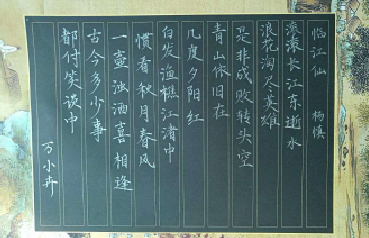 临江仙 杨慎
滚滚长江东逝水
浪花淘尽英雄
是非成败转头空
青山依旧在
几度夕阳红
白发渔樵江渚中
惯看秋月春风
一壶浊酒喜相逢
古今多少事
都付笑谈中